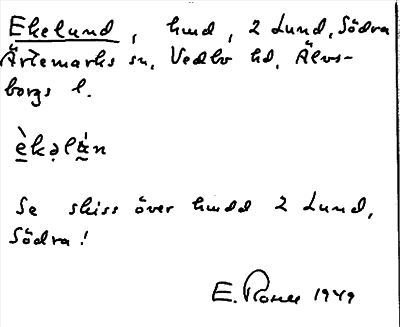 Ekelund, hmd, 2 Lund, Södra
Ärtemarks sn, Vedbo hd, Älvs-
borgs l.
Se skiss över hmdd 2 Lund,
Södra!
E. 1949